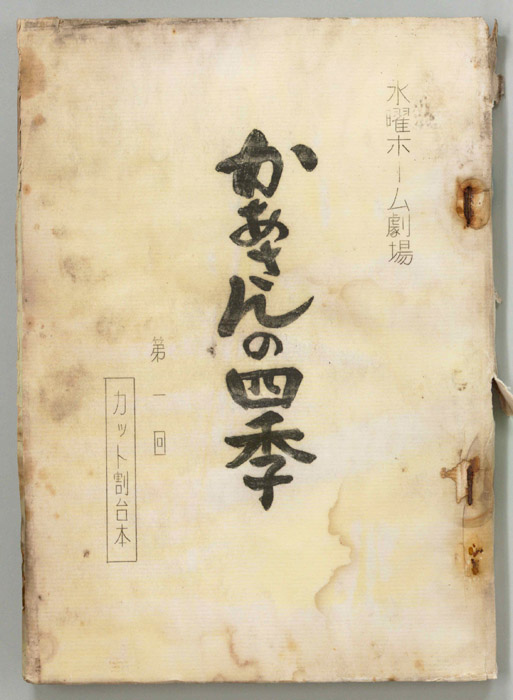 水曜ホーム劇場
かあさんの四季
第一回
カット割台本